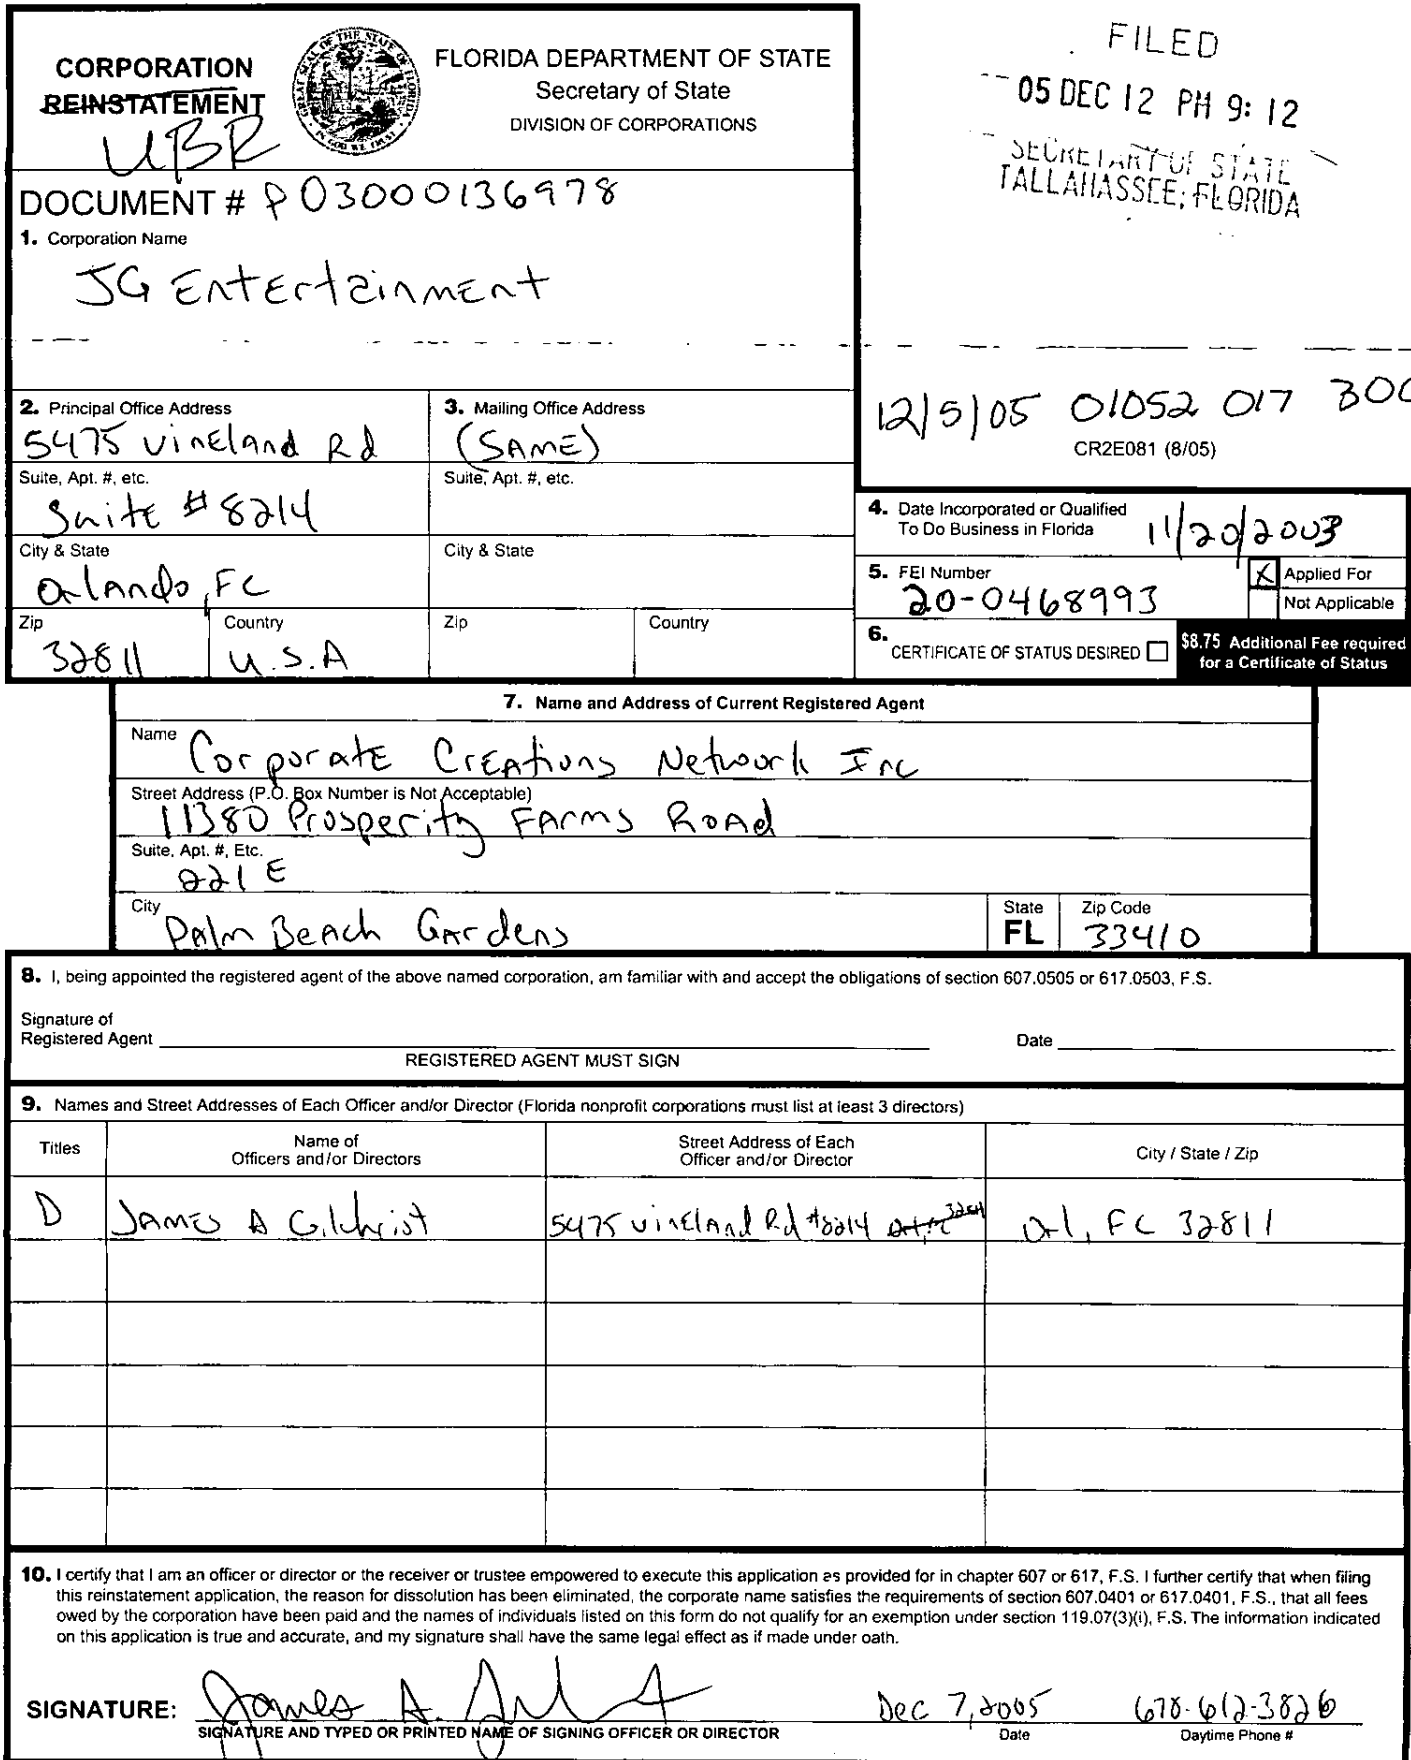 CORPORATION
REINSTATEMENT
UBR
FLORIDA DEPARTMENT OF STATE
Secretary of State
DIVISION OF CORPORATIONS
FILED
05 DEC 12 PM 9:12
SECRETARY OF STATE
TALLAHASSEE, FLORIDA
DOCUMENT # P03000136978
1. Corporation Name
JG Entertainment
12/5/05 01052 017 300
CR2E081 (8/05)
2. Principal Office Address
5475 Vineland Rd
3. Mailing Office Address
(SAME)
Suite, Apt. #, etc.
Suite #8214
Suite, Apt. #, etc.
City & State
Orlando, FL
City & State
Zip
32811
Country
U.S.A
Zip
Country
4. Date Incorporated or Qualified
To Do Business in Florida
11/20/2003
5. FEI Number
20-0468993
X Applied For
Not Applicable
6.
CERTIFICATE OF STATUS DESIRED
$8.75 Additional Fee required
for a Certificate of Status
7. Name and Address of Current Registered Agent
Name
Corporate Creations Network Inc
Street Address (P.O. Box Number is Not Acceptable)
11380 Prosperity Farms Road
Suite, Apt. #, Etc.
221 E
City
Palm Beach Gardens
State
FL
Zip Code
33410
8. I, being appointed the registered agent of the above named corporation, am familiar with and accept the obligations of section 607.0505 or 617.0503, F.S.
Signature of
Registered Agent
Date
REGISTERED AGENT MUST SIGN
9. Names and Street Addresses of Each Officer and/or Director (Florida nonprofit corporations must list at least 3 directors)
Titles
Name of
Officers and/or Directors
Street Address of Each
Officer and/or Director
City / State / Zip
D
James A Gilchrist
5475 Vineland Rd #8214
Orl, FL 32811
10. I certify that I am an officer or director or the receiver or trustee empowered to execute this application as provided for in chapter 607 or 617, F.S. I further certify that when filing
this reinstatement application, the reason for dissolution has been eliminated, the corporate name satisfies the requirements of section 607.0401 or 617.0401, F.S., that all fees
owed by the corporation have been paid and the names of individuals listed on this form do not qualify for an exemption under section 119.07(3)(i), F.S. The information indicated
on this application is true and accurate, and my signature shall have the same legal effect as if made under oath.
SIGNATURE:
James A.
Dec 7, 2005
678-612-3826
SIGNATURE AND TYPED OR PRINTED NAME OF SIGNING OFFICER OR DIRECTOR
Date
Daytime Phone #